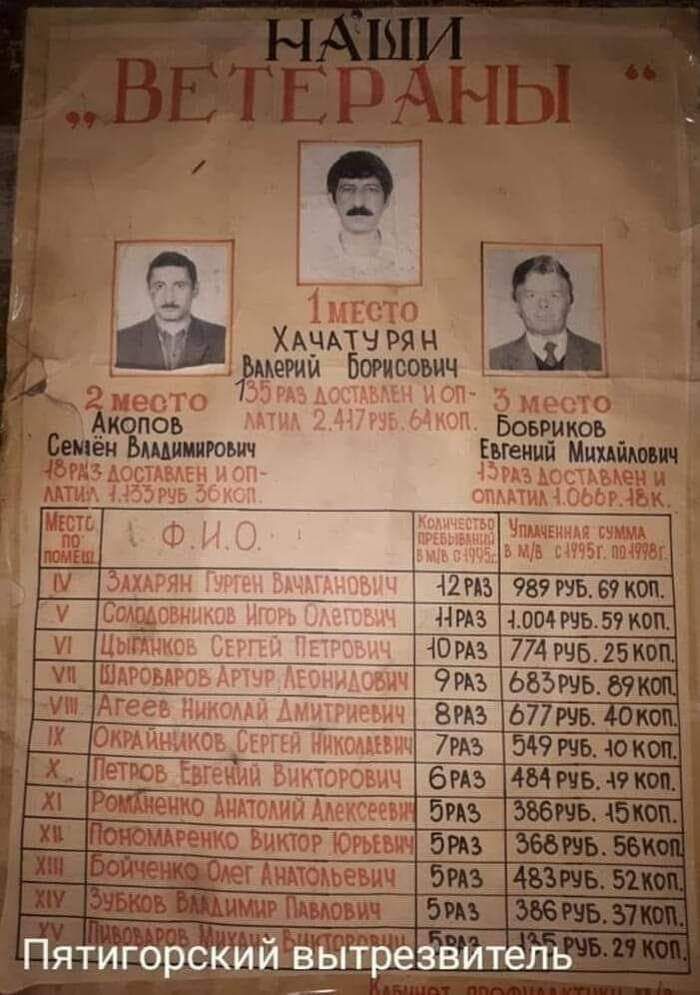 НАШИ
„ВЕТЕРАНЫ“
1 МЕСТО
ХАЧАТУРЯН
ВАЛЕРИЙ БОРИСОВИЧ
135 РАЗ ДОСТАВЛЕН И ОП-
ЛАТИЛ 2.417 РУБ. 64 КОП.
2 МЕСТО
АКОПОВ
СЕМЁН ВЛАДИМИРОВИЧ
18 РАЗ ДОСТАВЛЕН И ОП-
ЛАТИЛ 1.133 РУБ 36 КОП.
3 МЕСТО
БОБРИКОВ
ЕВГЕНИЙ МИХАЙЛОВИЧ
13 РАЗ ДОСТАВЛЕН И
ОПЛАТИЛ 1.066 Р. 18 К.
МЕСТО ПО ПОМЕЩ. Ф.И.О. КОЛИЧЕСТВО ПРЕБЫВАНИЙ В М/В С 1995г. УПЛАЧЕННАЯ СУММА В М/В С 1995г. ПО 1998г.
IV ЗАХАРЯН ГУРГЕН ВАЧАГАНОВИЧ 12 РАЗ 989 РУБ. 69 КОП.
V СОЛОДОВНИКОВ ИГОРЬ ОЛЕГОВИЧ 11 РАЗ 1.004 РУБ. 59 КОП.
VI ЦЫГАНКОВ СЕРГЕЙ ПЕТРОВИЧ 10 РАЗ 774 РУБ. 25 КОП.
VII ШАРОВАРОВ АРТУР ЛЕОНИДОВИЧ 9 РАЗ 683 РУБ. 89 КОП.
VIII АГЕЕВ НИКОЛАЙ ДМИТРИЕВИЧ 8 РАЗ 677 РУБ. 40 КОП.
IX ОКРАЙНИКОВ СЕРГЕЙ НИКОЛАЕВИЧ 7 РАЗ 549 РУБ. 10 КОП.
X ПЕТРОВ ЕВГЕНИЙ ВИКТОРОВИЧ 6 РАЗ 484 РУБ. 19 КОП.
XI РОМАНЕНКО АНАТОЛИЙ АЛЕКСЕЕВИЧ 5 РАЗ 386 РУБ. 15 КОП.
XII ПОНОМАРЕНКО ВИКТОР ЮРЬЕВИЧ 5 РАЗ 368 РУБ. 56 КОП
XIII БОЙЧЕНКО ОЛЕГ АНАТОЛЬЕВИЧ 5 РАЗ 483 РУБ. 52 КОП.
XIV ЗУБКОВ ВЛАДИМИР ПАВЛОВИЧ 5 РАЗ 386 РУБ. 37 КОП.
XV ПИВОВАРОВ МИХАИЛ ВИКТОРОВИЧ 5 РАЗ 135 РУБ. 29 КОП.
Пятигорский вытрезвитель
КАБИНЕТ ПРОФИЛАКТИКИ М/В